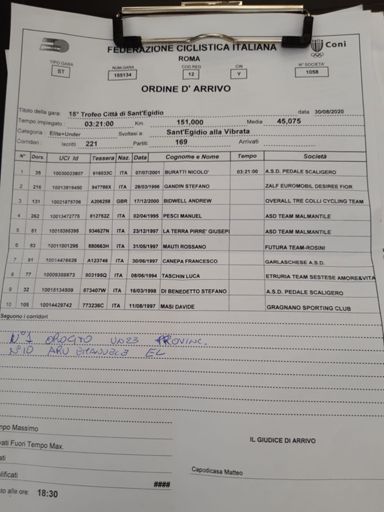 FEDERAZIONE CICLISTICA ITALIANA
Coni
ROMA
TIPO GARA NUM.GARA COD.REG N° SOCIETA'
ST 155134 12 V 1058
ORDINE D' ARRIVO
Titolo della gara: 15° Trofeo Città di Sant'Egidio data 30/08/2020
Tempo impiegato : 03:21:00 Km. 151,000 Media 45,075
Categoria Elite+Under Svoltesi a Sant'Egidio alla Vibrata
Corridori : Iscritti 221 Partiti 169 Arrivati
N° Dors. UCI Id Tessera Naz. Data Cognome e Nome Tempo Società
1 ITA 07/07/2001 BURATTI NICOLO' 03:21:00 A.S.D. PEDALE SCALIGERO
2 216 ITA GANDIN STEFANO ZALF EUROMOBIL DESIREE FIOR
3 131 GBR 17/12/2000 BIDWELL ANDREW OVERALL TRE COLLI CYCLING TEAM
4 262 ITA 02/04/1995 PESCI MANUEL ASD TEAM MALMANTILE
5 ITA 23/12/1997 LA TERRA PIRRE' GIUSEPI ASD TEAM MALMANTILE
6 ITA MAUTI ROSSANO FUTURA TEAM-ROSINI
7 ITA 30/06/1997 CANEPA FRANCESCO GARLASCHESE A.S.D.
8 77 ITA 08/06/1994 TASCHIN LUCA ETRURIA TEAM SESTESE AMORE&VITA
9 32 ITA 16/03/1998 DI BENEDETTO STEFANO A.S.D. PEDALE SCALIGERO
10 105 10014429742 773236C ITA 11/08/1997 MASI DAVIDE GRAGNANO SPORTING CLUB
Seguono i corridori
N°1 U23 PROVINC.
N°10 EL
mpo Massimo
vati Fuori Tempo Max.
ati
alificati ####
so alle ore: 18:30
IL GIUDICE DI ARRIVO
Capodicasa Matteo